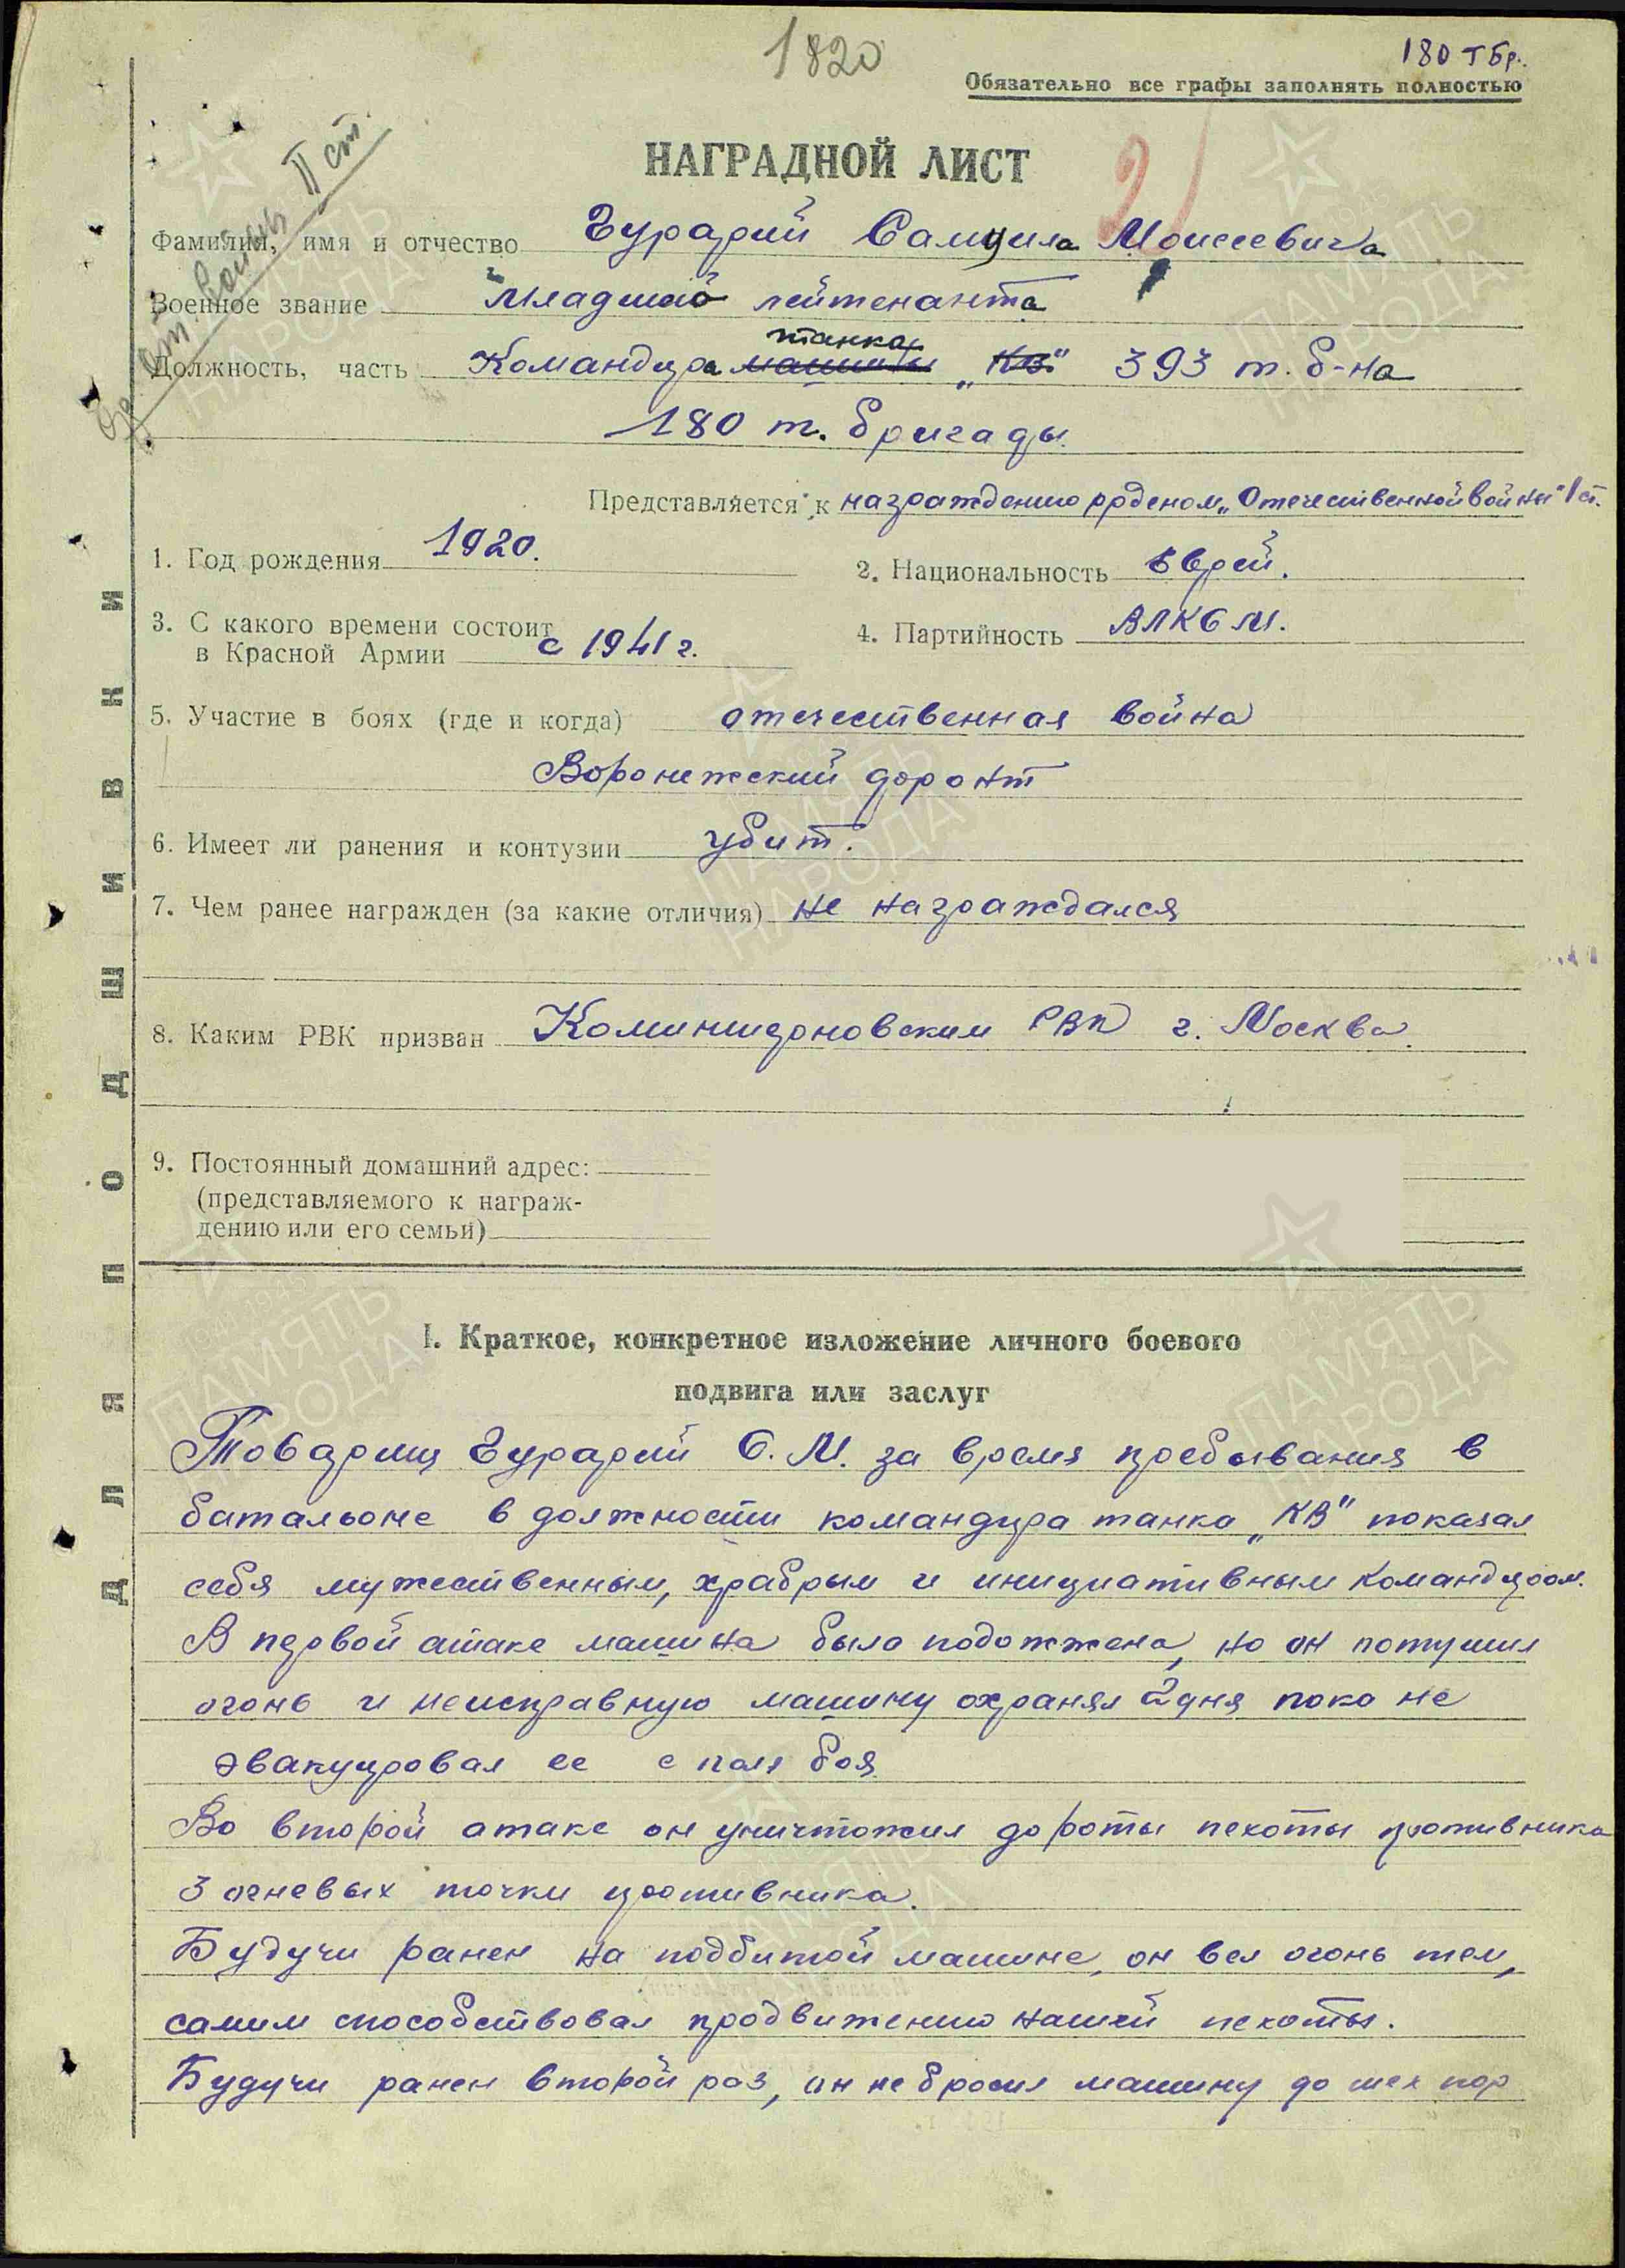 1820
180 ТБр.
Обязательно все графы заполнять полностью
Ор. От. войны II ст.
НАГРАДНОЙ ЛИСТ
2
Фамилия, имя и отчество Гурарий Самуила Моисеевича
Военное звание Младшего лейтенанта
танка
Должность, часть Командира машины „КВ" 393 т. б-на
180 т. бригады
Представляется к награждению орденом „Отечественной войны" I ст.
1. Год рождения 1920. 2. Национальность Еврей.
3. С какого времени состоит
в Красной Армии с 1941 г. 4. Партийность ВЛКСМ.
5. Участие в боях (где и когда) отечественная война
Воронежский фронт
6. Имеет ли ранения и контузии убит.
7. Чем ранее награжден (за какие отличия) не награждался
8. Каким РВК призван Коминтерновским РВК г. Москва.
9. Постоянный домашний адрес:
(представляемого к награж-
дению или его семьи)
I. Краткое, конкретное изложение личного боевого
подвига или заслуг
Товарищ Гурарий С. М. за время пребывания в
батальоне в должности командира танка „КВ" показал
себя мужественным, храбрым и инициативным командиром.
В первой атаке машина была подожжена, но он потушил
огонь и неисправную машину охранял 2 дня пока не
эвакуировал ее с поля боя
Во второй атаке он уничтожил до роты пехоты противника
3 огневых точки противника.
Будучи ранен на подбитой машине, он вел огонь тем,
самим способствовал продвижению нашей пехоты.
Будучи ранен второй раз, он не бросил машину до тех пор
ДЛЯ ПОДШИВКИ
ПАМЯТЬ НАРОДА